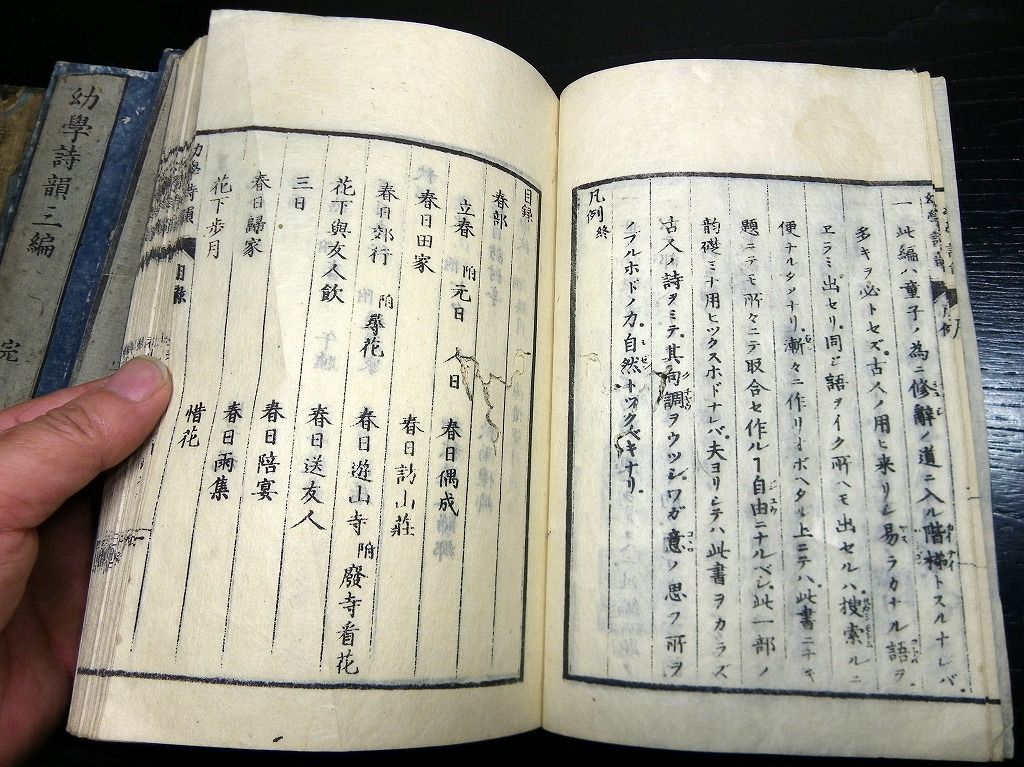 一 此編ハ童子ノ為ニ修辭ノ道ニ入ル階梯トスルナレバ
多キヲ必トセズ古人ノ用ヒ来リシ易ラカナル語ヲ
ヱラミ出セリ同ジ語ヲイク所ヘモ出セルハ捜索ルニ
便ナルタメナリ漸々ニ作リイボヘタル上ニテハ此書ニナキ
題ニテモ所々ニテ取合セ作ルヿ自由ニナルベシ此一部ノ
韵礎ミナ用ヒツクスホドナレバ夫ヨリシテハ此書ヲカラズ
古人ノ詩ヲミテ其句調ヲウツシワガ意ノ思フ所ヲ
ノブルホドノ力自然トツクベキナリ
凡例終
目録
春部
立春 附元日 人日 春日偶成
春日田家 春日訪山莊
春日郊行 附尋花 春日遊山寺 附廢寺看花
花下與友人飲 春日送友人
三日 春日陪宴
春日歸家 春日雨集
花下歩月 惜花
幼學詩韻 目録
幼學詩韻三編
完